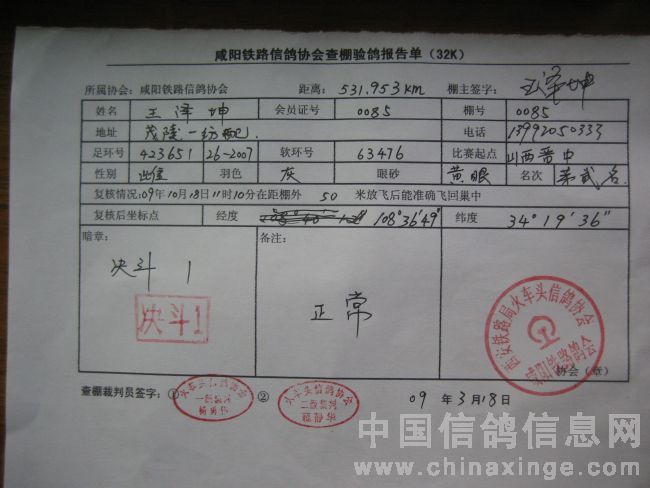 咸阳铁路信鸽协会查棚验鸽报告单（32K）
所属协会：咸阳铁路信鸽协会 距离：531.953km 棚主签字：王泽坤
姓名 王泽坤 会员证号 0085 棚号 0085
地址 茂陵一纺 电话 13992050333
足环号 423651 26-2007 软环号 63476 比赛起点 山西晋中
性别 雌 羽色 灰 眼砂 黄眼 名次 第贰名
复核情况：09年10月18日11时10分在距棚外 50 米放飞后能准确飞回巢中
复核后坐标点 经度 108°36′49″ 纬度 34°19′36″
暗章： 备注：
决斗 1
正常
决斗1
西安铁路局火车头信鸽协会
咸阳铁路信鸽
协会（章）
查棚裁判员签字：① ② 09 年 3 月 18 日
火车头信鸽协会
火车头信鸽协会
中国信鸽信息网
www.chinaxinge.com